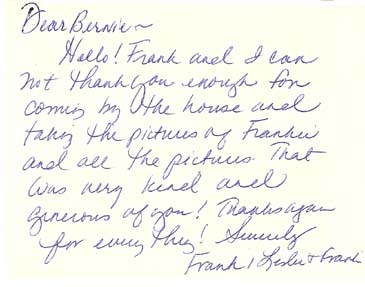 Dear Bernie~
Hello! Frank and I can
not thank you enough for
coming by the house and
taking the pictures of Frankie
and all the pictures. That
was very kind and
generous of you! Thanks again
for every thing! Sincerely
Frank, Leslie + Frankie